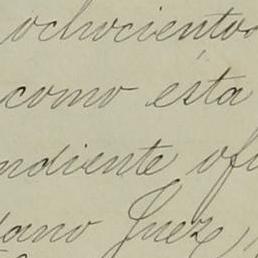 ochocientos
como ésta
ndiente ofi
dano Juez,